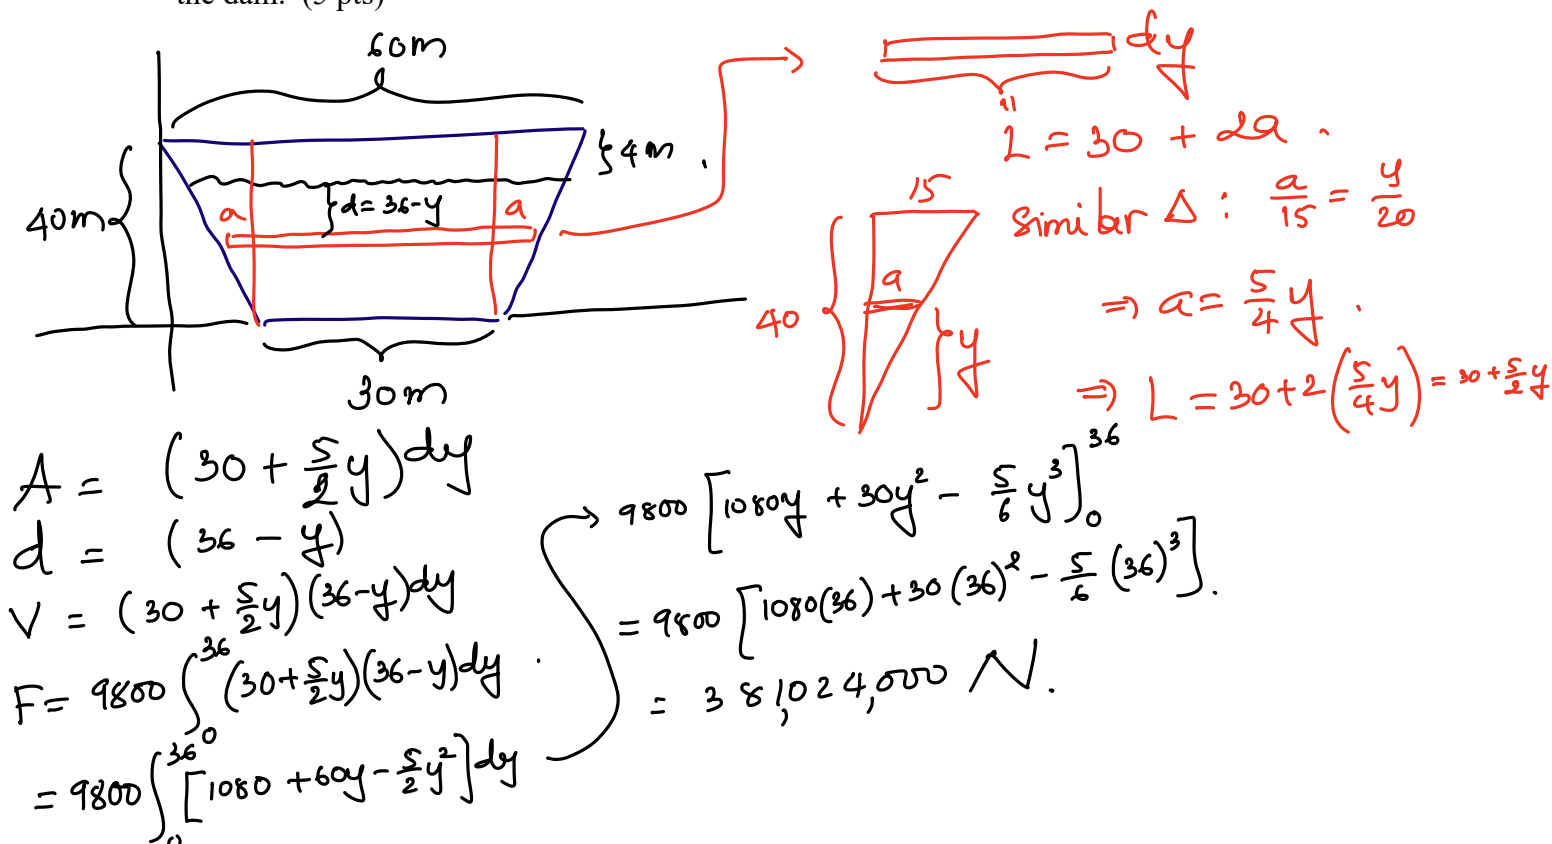 the dam. (5 pts)
60m
4m .
40m
a
d = 36-y
a
30m
dy
L = 30 + 2a .
Similar Δ : a/15 = y/20
15
40
a
y
⇒ a = 5/4 y .
⇒ L = 30+2(5/4 y) = 30+5/2 y
A = (30 + 5/2 y)dy
d = (36 - y)
V = (30 + 5/2 y)(36-y)dy
F = 9800 ∫₀³⁶ (30+5/2 y)(36-y)dy .
= 9800 ∫₀³⁶ [1080 + 60y - 5/2 y²]dy
→ 9800 [1080y + 30y² - 5/6 y³]₀³⁶
= 9800 [1080(36) + 30(36)² - 5/6 (36)³].
= 381,024,000 N.